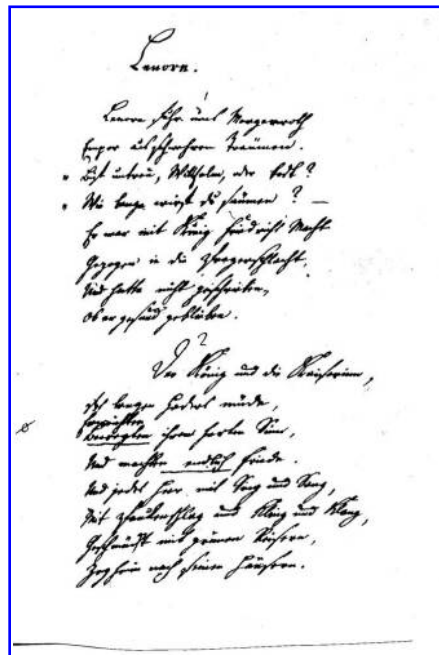 Lenore.
1
Lenore fuhr ums Morgenroth
Empor aus schweren Träumen.
„ Bist untreu, Wilhelm, oder todt?
„ Wie lange wirst du säumen? —
Er war mit König Friedrichs Macht
Gezogen in die Pragerschlacht,
Und hatte nicht geschrieben,
Ob er gesund geblieben.
2
Der König und die Kaiserinn,
Des langen Haders müde,
Erweichten
ihren harten Sinn,
Und machten endlich Friede.
Und jedes Heer, mit Sing und Sang,
Mit Paukenschlag und Kling und Klang,
Geschmückt mit grünen Reisern,
Zog heim nach seinen Häusern.